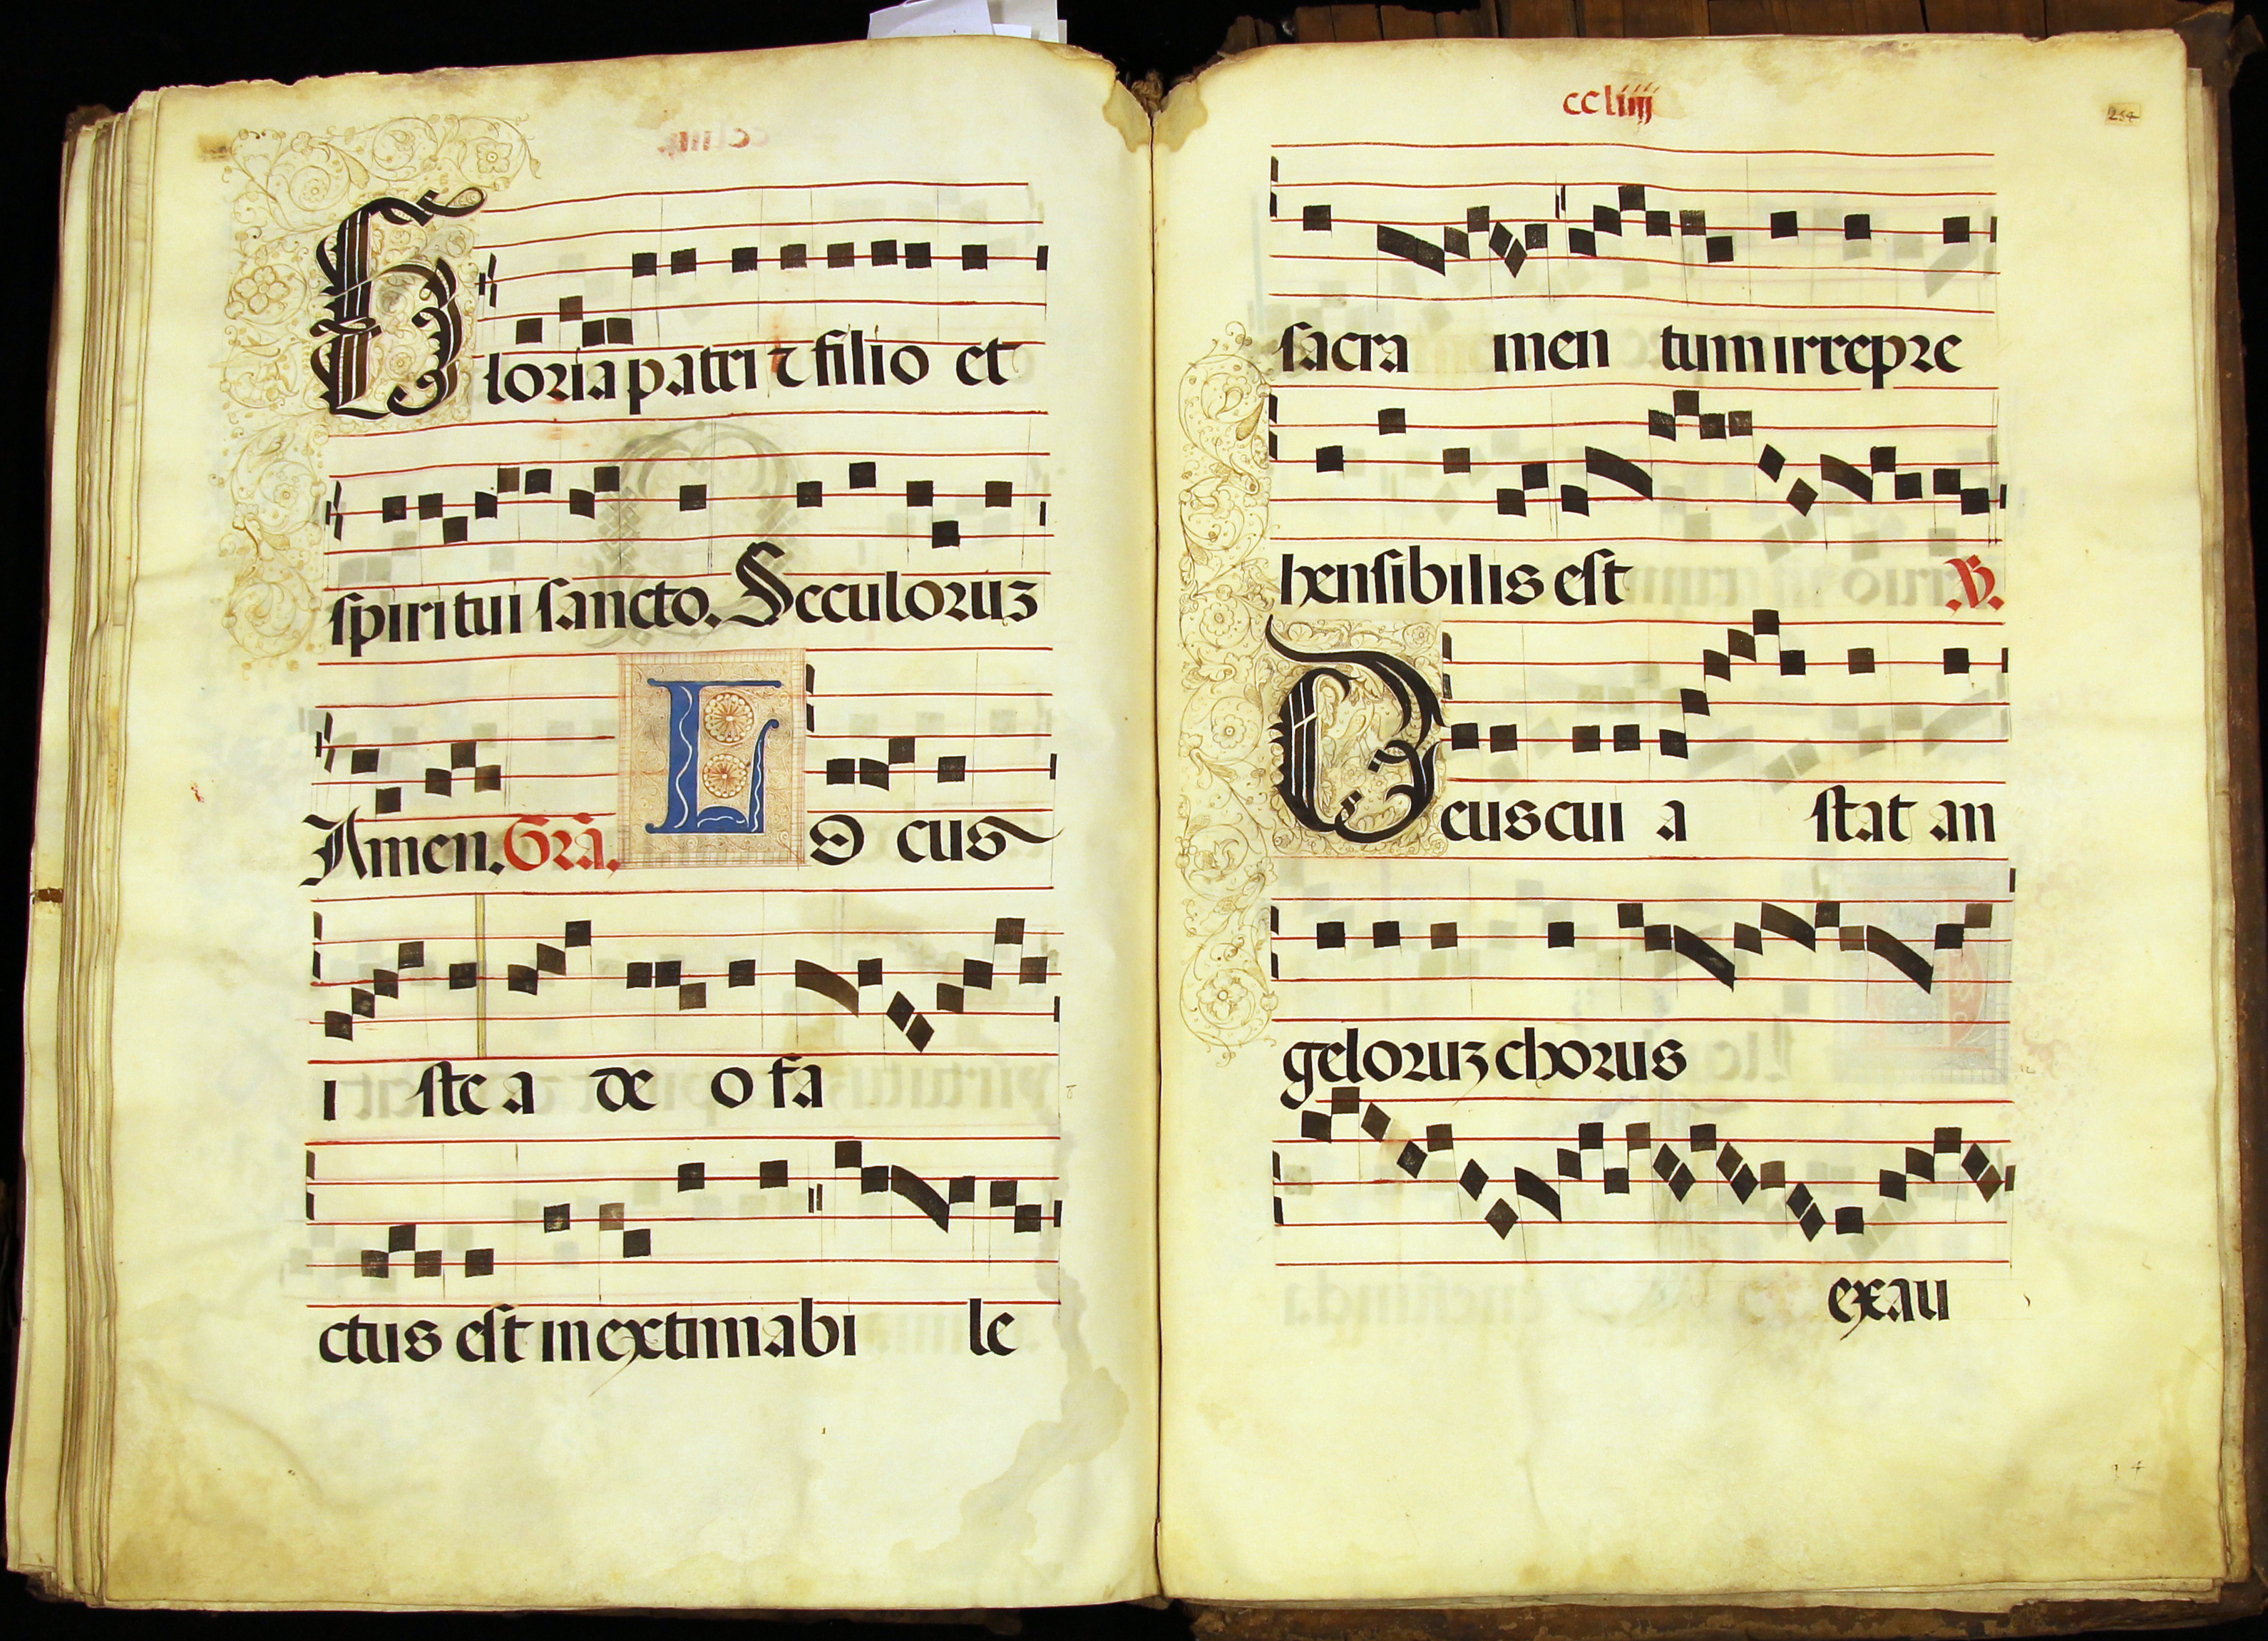 Gloria patri ⁊ filio et
spiritui sancto. Seculoruꝫ
Amen. Grā. LOcus
iste a deo fa
ctus est inextimabile
ccliiij
254
sacramentum irrepre
hensibilis est .V.
Deus cui astat an
geloruꝫ chorus
exau